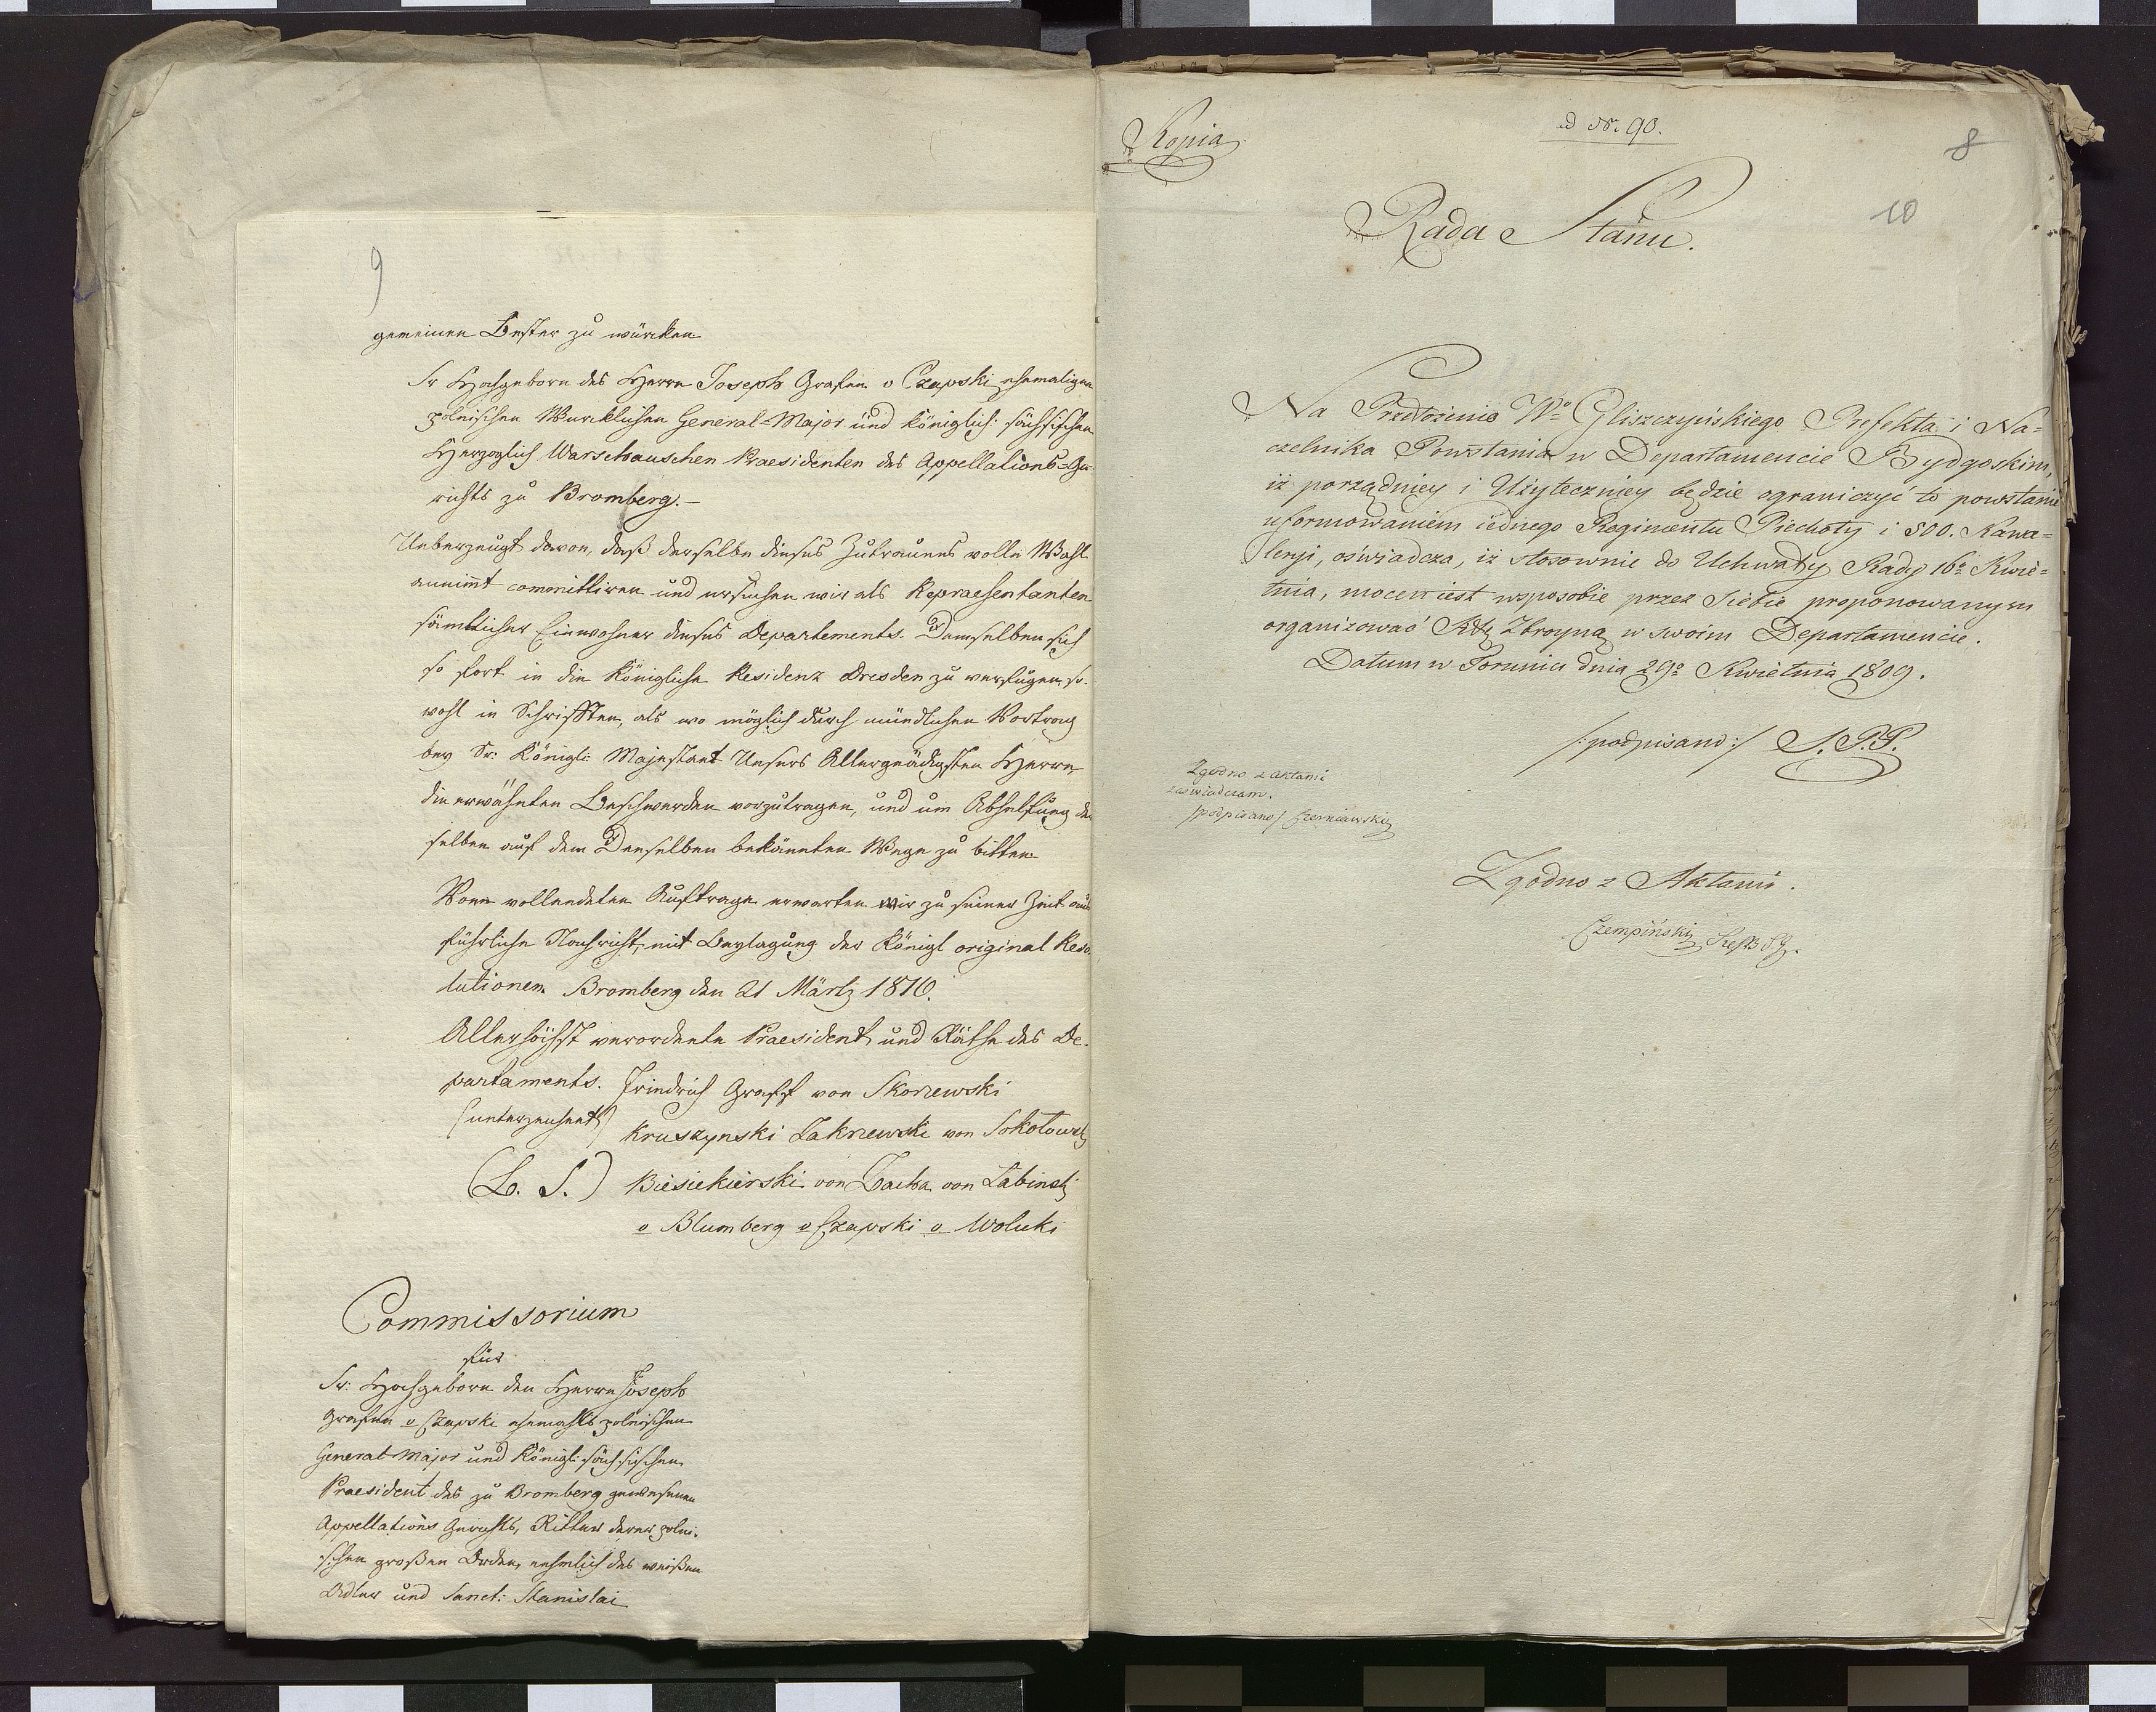 9
gemeinen Bester zu würcken
Sr Hochgeborn des Herrn Joseph Grafen v Czapski ehemaligen
polnischen Wurcklichen General=Major und Königlich: sächsischen
Herzoglich Warschauschen Praesidenten des Appellations=Ge-
richts zu Bromberg.-
Ueberzeugt davon, daß derselbe dieses Zutrauens volle Wahl
annimt committiren und ersuchen wir als Repraesentanten
sämtlicher Einwohner dieses Departements. Demselben sich
so fort in die Königliche Residenz Dresden zu verfügen, so-
wohl in Schrifften, als wo möglich durch mündlichen Vortrag
bey Sr: Königl: Majestaet Unsers Allergnädigsten Herrn,
die erwähnten Beschwerden vorzutragen, und um Abhelfung der
selben auf dem Denselben bekannten Wege zu bitten
Vom vollendeten Auftrage erwarten wir zu seiner Zeit aus
führliche Nachricht, mit Beylagung der Königl original Reso-
lutionen. Bromberg den 21 Märtz 1810.
Allerhöchst verordnete Praesident und Räthe des De-
partaments. Friedrich Graff von Skorzewski
(unterzeichnet) Kruszynski Zakrzewski von Sokołowski
(L. S.) Biesiekierski von von Łabinski
v Blumberg v Czapski v Wolicki
Commissorium
für
Sr: Hochgeborn den Herrn Joseph
Grafen v Czapski ehemahls polnischen
General-Major und Königl: sächsischen
Praesident des zu Bromberg gewesenen
Appellations Gerichts, Ritter derer polni-
schen großen Orden, nehmlich des weißen
Adler und Sanct: Stanislai
Kopia
ad Nr. 90.
8
10
Rada Stanu.
Na Przełożenie Wo Gliszczyńskiego Prefekta i Na=
czelnika Powstania w Departamencie Bydgoskim,
iż porządniey i Użyteczniey będzie ograniczyć to powstanie
uformowaniem iednego Regimentu Piechoty i 800. Kawa=
leryi, oświadcza, iż stosownie do Uchwały Rady 16o Kwie=
tnia, mocen iest wsposobie przez Siebie proponowanym
organizować Siłę Zbroyną w swoim Departamencie.
Datum w Toruniu dnia 29o Kwietnia 1809.
/:podpisano:/ S. P.
Zgodno z aktami
zaświadczam.
/podpisano/ Czerniawski
Zgodno z Aktami.
Czempiński